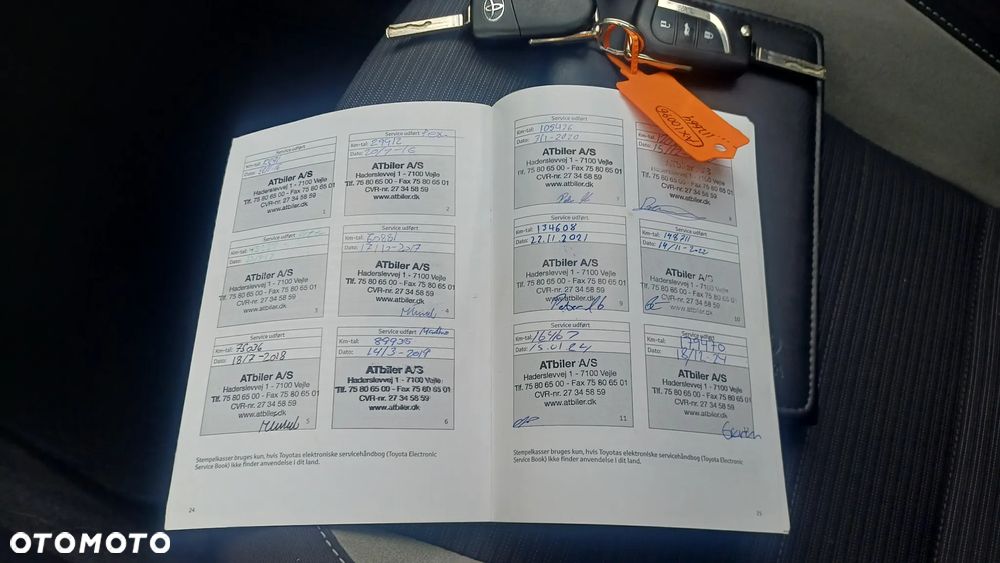 Service udført
Km-tal:
Dato:
ATbiler A/S
Haderslevvej 1 - 7100 Vejle
Tlf. 75 80 65 00 - Fax 75 80 65 01
CVR-nr. 27 34 58 59
www.atbiler.dk
1
Service udført
Km-tal: 29912
Dato: 20/7-16
ATbiler A/S
Haderslevvej 1 - 7100 Vejle
Tlf. 75 80 65 00 - Fax 75 80 65 01
CVR-nr. 27 34 58 59
www.atbiler.dk
2
Service udført
Km-tal:
Dato:
ATbiler A/S
Haderslevvej 1 - 7100 Vejle
Tlf. 75 80 65 00 - Fax 75 80 65 01
CVR-nr. 27 34 58 59
www.atbiler.dk
3
Service udført
Km-tal: 60881
Dato: 17/10-2017
ATbiler A/S
Haderslevvej 1 - 7100 Vejle
Tlf. 75 80 65 00 - Fax 75 80 65 01
CVR-nr. 27 34 58 59
www.atbiler.dk
4
Service udført
Km-tal: 75036
Dato: 18/7-2018
ATbiler A/S
Haderslevvej 1 - 7100 Vejle
Tlf. 75 80 65 00 - Fax 75 80 65 01
CVR-nr. 27 34 58 59
www.atbiler.dk
5
Service udført
Km-tal: 89935
Dato: 14/3-2019
ATbiler A/S
Haderslevvej 1 - 7100 Vejle
Tlf. 75 80 65 00 - Fax 75 80 65 01
CVR-nr. 27 34 58 59
www.atbiler.dk
6
Stempelkasser bruges kun, hvis Toyotas elektroniske servicehåndbog (Toyota Electronic
Service Book) ikke finder anvendelse i dit land.
24
Service udført
Km-tal: 105426
Dato: 7/1-2020
ATbiler A/S
Haderslevvej 1 - 7100 Vejle
Tlf. 75 80 65 00 - Fax 75 80 65 01
CVR-nr. 27 34 58 59
www.atbiler.dk
7
Km-tal:
Dato:
ATbiler
8
Service udført
Km-tal: 134608
Dato: 22.11.2021
ATbiler A/S
Haderslevvej 1 - 7100 Vejle
Tlf. 75 80 65 00 - Fax 75 80 65 01
CVR-nr. 27 34 58 59
www.atbiler.dk
9
Service udført
Km-tal: 148711
Dato: 14/11-2022
ATbiler A/S
Haderslevvej 1 - 7100 Vejle
Tlf. 75 80 65 00 - Fax 75 80 65 01
CVR-nr. 27 34 58 59
www.atbiler.dk
10
Service udført
Km-tal: 16467
Dato: 15.01 24
ATbiler A/S
Haderslevvej 1 - 7100 Vejle
Tlf. 75 80 65 00 - Fax 75 80 65 01
CVR-nr. 27 34 58 59
www.atbiler.dk
11
Service udført
Km-tal: 179470
Dato: 18/12-24
ATbiler A/S
Haderslevvej 1 - 7100 Vejle
Tlf. 75 80 65 00 - Fax 75 80 65 01
CVR-nr. 27 34 58 59
www.atbiler.dk
Stempelkasser bruges kun, hvis Toyotas elektroniske servicehåndbog (Toyota Electronic
Service Book) ikke finder anvendelse i dit land.
25
OTOMOTO